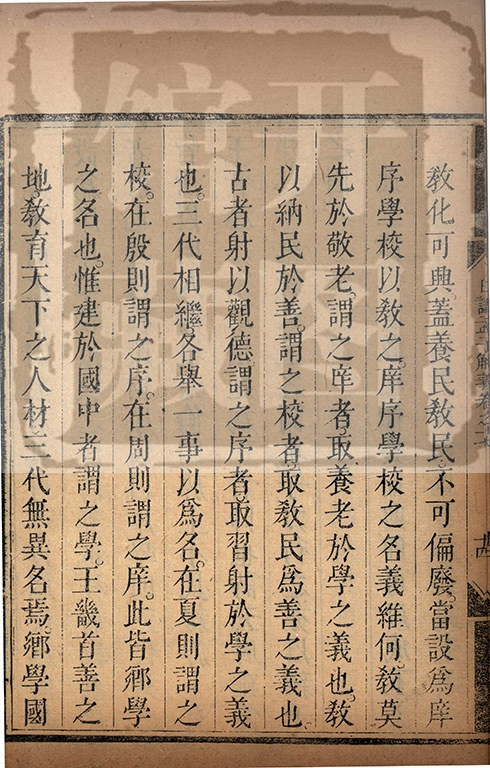 教化可興蓋養民教民不可偏廢當設為庠
序學校以教之庠序學校之名義維何教莫
先於敬老謂之庠者取養老於學之義也教
以納民於善謂之校者取教民為善之義也
古者射以觀德謂之序者取習射於學之義
也三代相繼各舉一事以為名在夏則謂之
校在殷則謂之序在周則謂之庠此皆鄉學
之名也惟建於國中者謂之學王畿首善之
地教育天下之人材三代無異名焉鄉學國